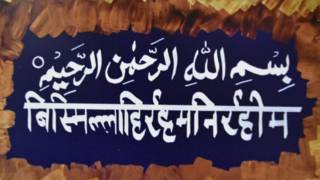 بِسْمِ اللهِ الرَّحْمٰنِ الرَّحِيْمِ
बिस्मिल्लाहिर्रहमानिर्रहीम